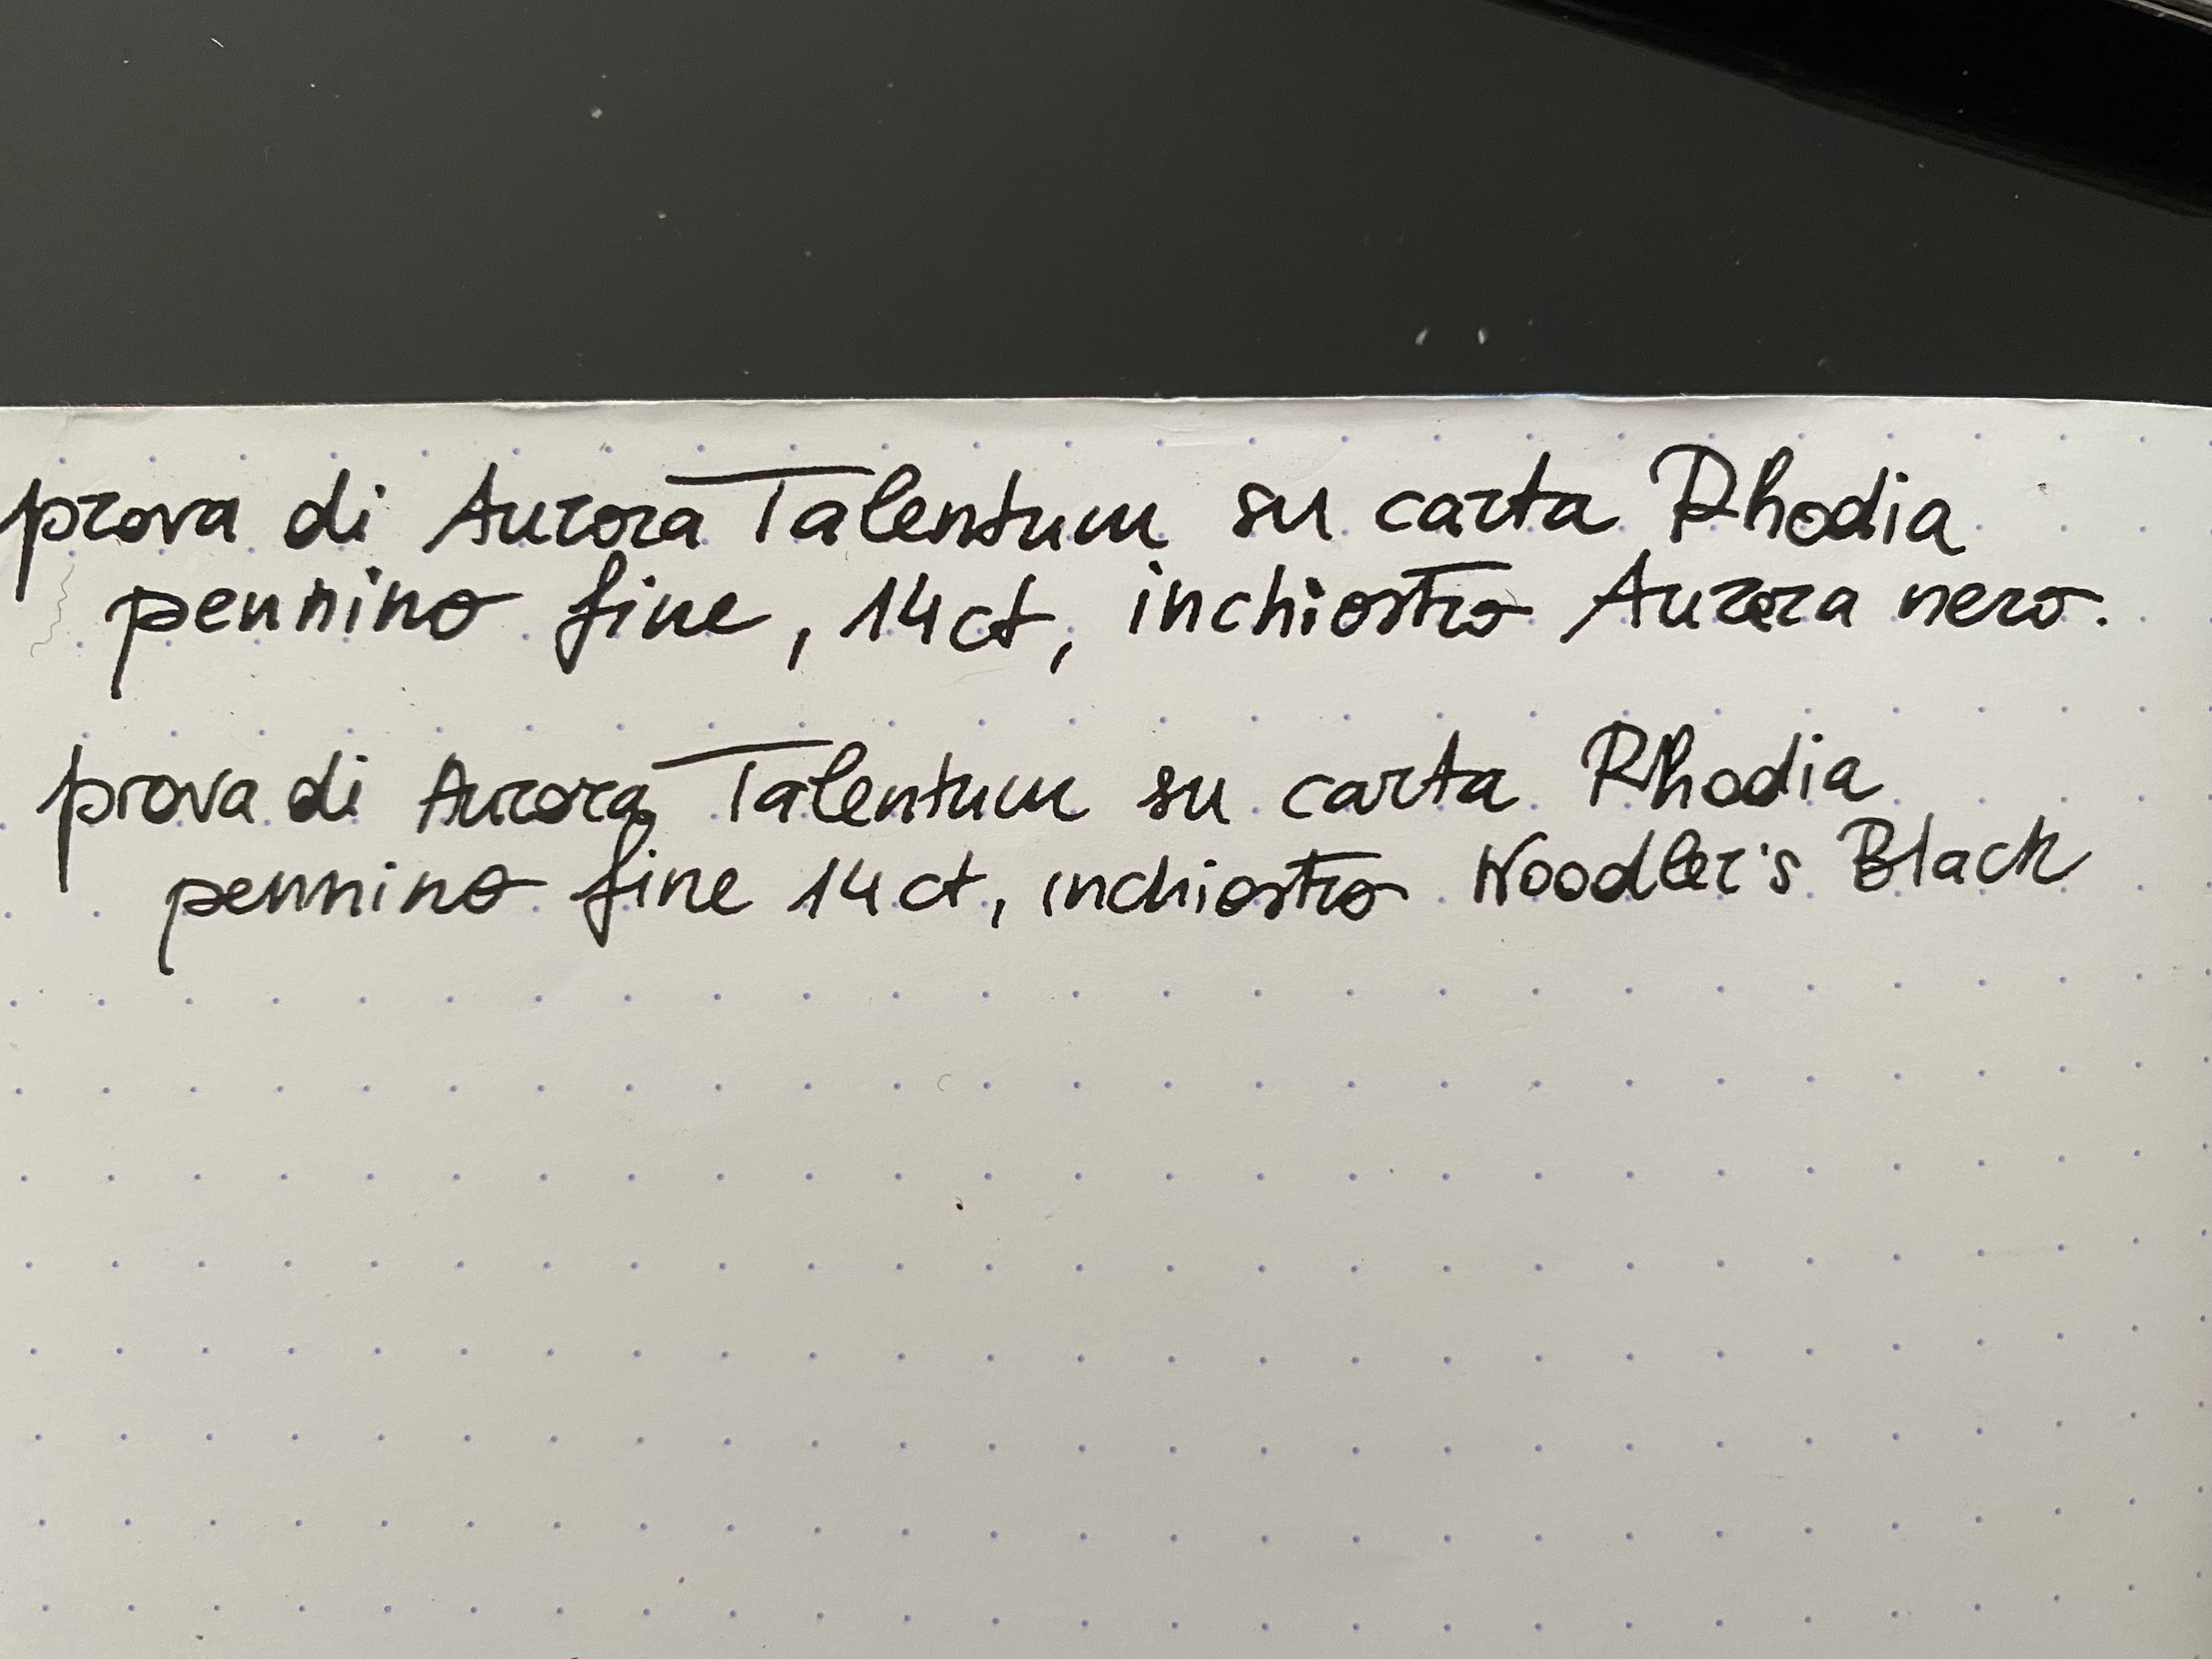 prova di Aurora Talentum su carta Rhodia
pennino fine, 14ct, inchiostro Aurora nero.
prova di Aurora Talentum su carta Rhodia
pennino fine 14ct, inchiostro Noodler's Black